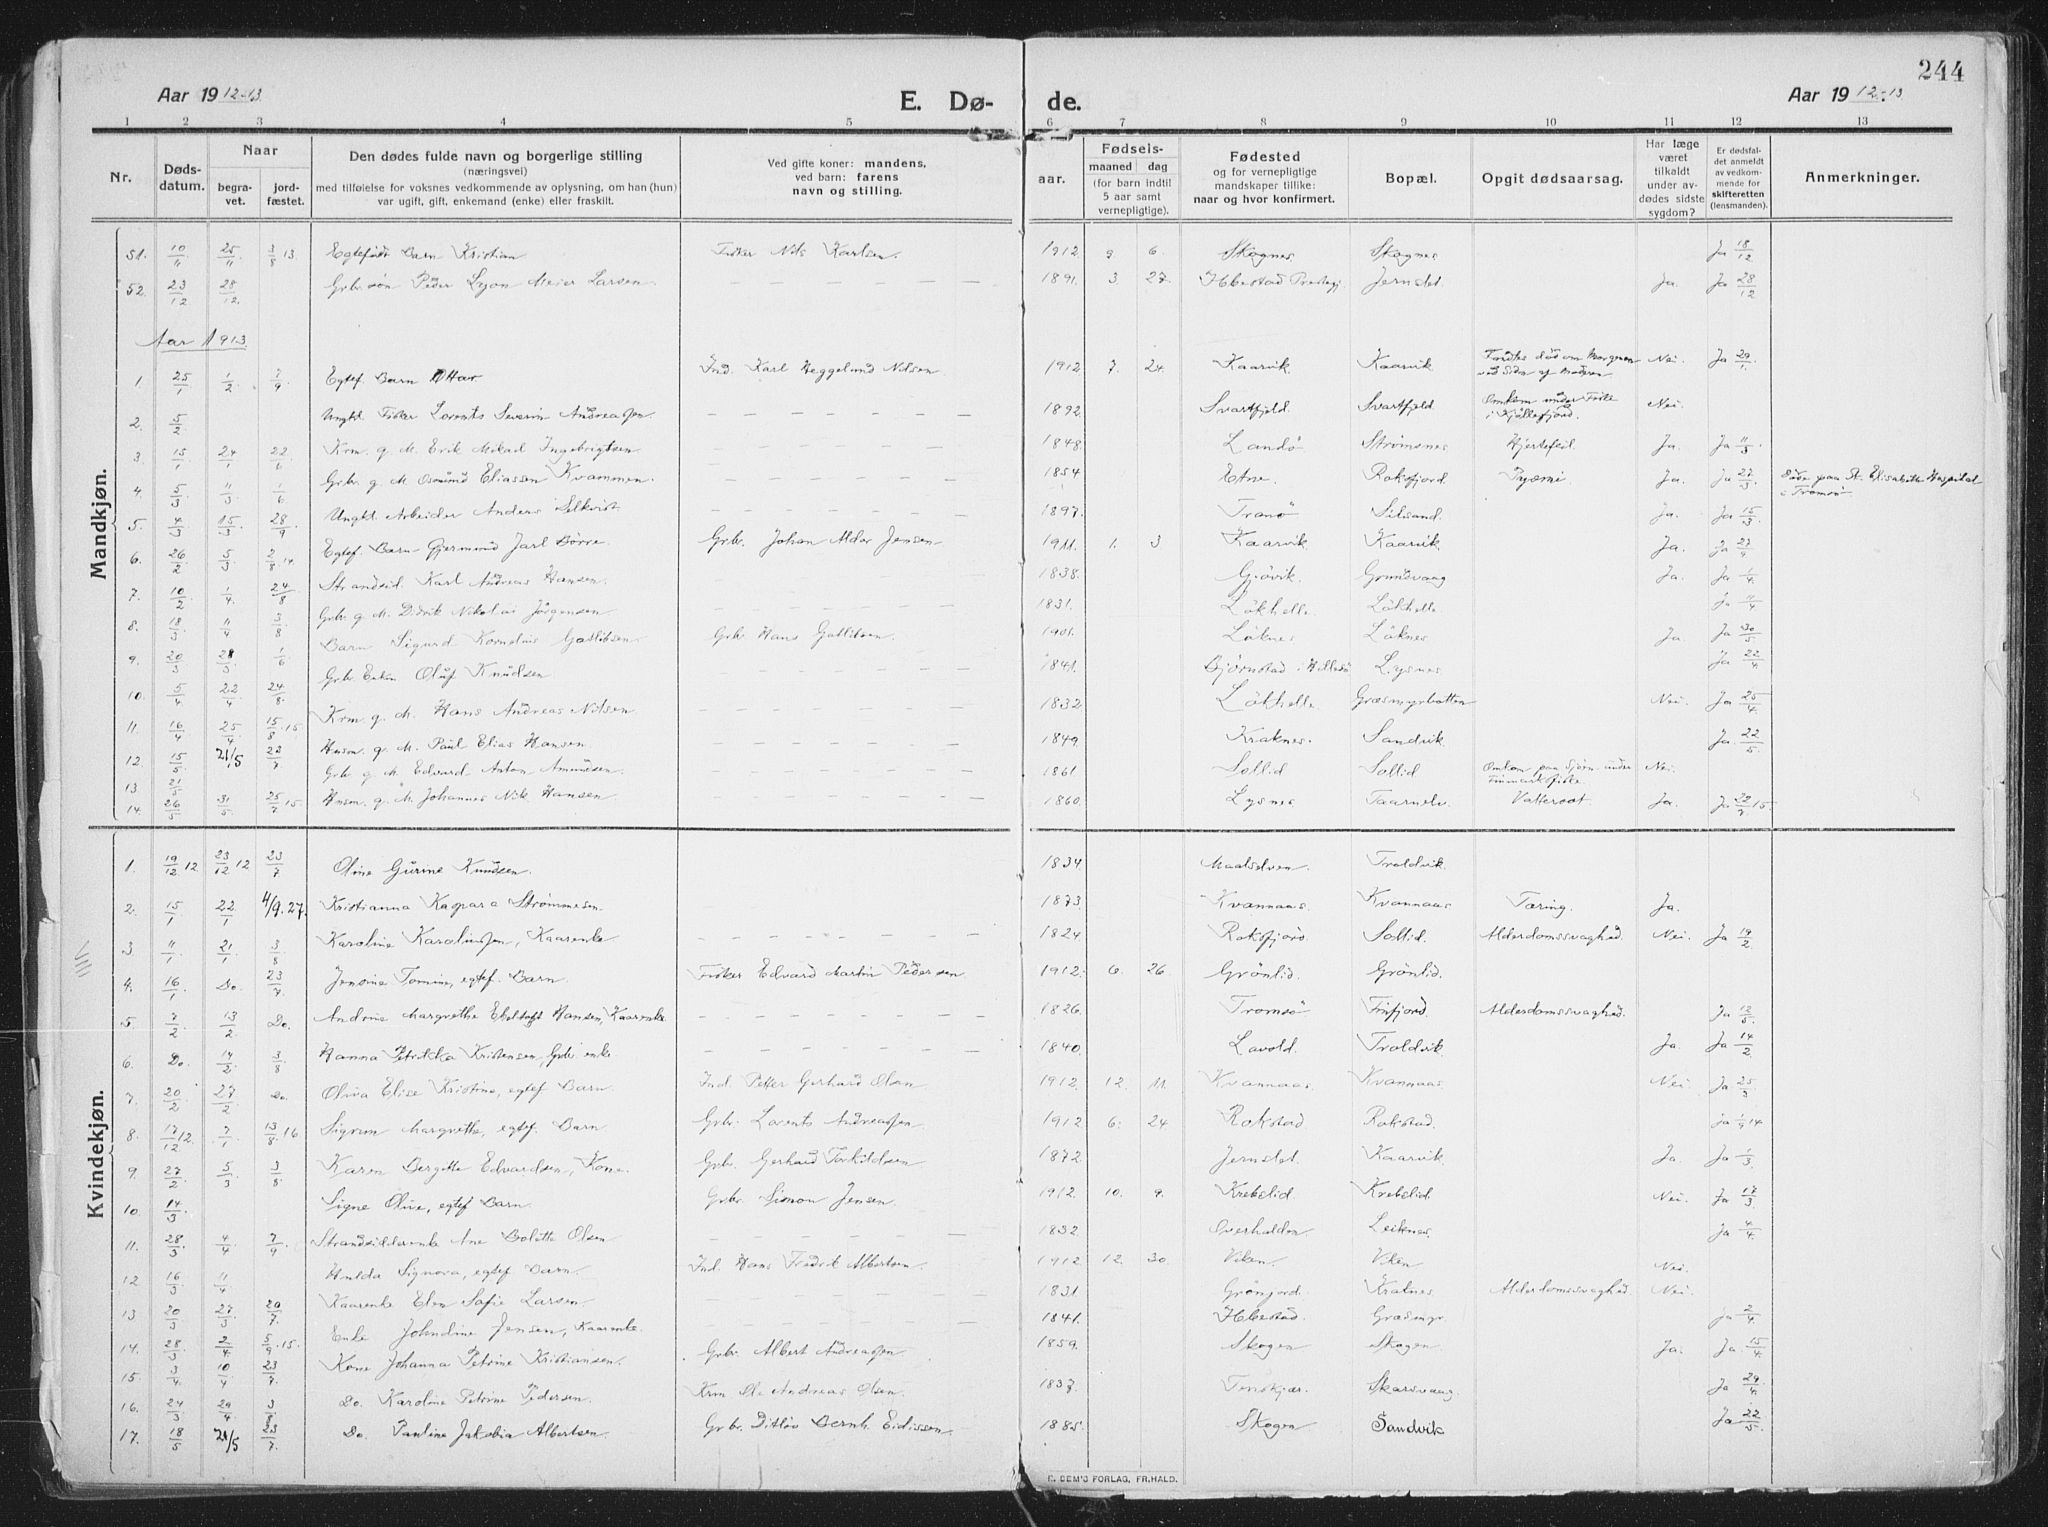 244
Aar 19 12-13. E. Dø- de. Aar 19 12-13.
1 2 3 4 5 6 7 8 9 10 11 12 13
Nr. Døds-datum. Naar begra-vet. jord-fæstet. Den dødes fulde navn og borgerlige stilling (næringsvei) med tilføielse for voksnes vedkommende av oplysning, om han (hun) var ugift, gift, enkemand (enke) eller fraskilt. Ved gifte koner: mandens, ved barn: farens navn og stilling. Fødsels- aar. maaned dag (for barn indtil 5 aar samt vernepligtige). Fødested og for vernepligtige mandskaper tillike: naar og hvor konfirmert. Bopæl. Opgit dødsaarsag. Har læge været tilkaldt under av-dødes sidste sygdom? Er dødsfal-det anmeldt av vedkom-mende for skifteretten (lensmanden). Anmerkninger.
Mandkjøn.
51. 10/11 25/11 3/8 13. Egtefødt Barn Kristian Fisker Nils Karlsen. 1912 9 6. Skognes Skognes Ja 18/12
52. 23/12 28/12 Grbr. søn Peder Lyon Meier Larsen. 1891. 3 27. Ibbestad Prestegj. Jernslet. Ja. Ja 28/12
Aar 1913.
1 25/1 1/2 7/9 Egtef Barn Ottar Ind. Karl Heggelund Nilsen 1912 7. 24. Kaarvik Kaarvik Fandtes død om Morgenen ved Siden af Moderen Nei. Ja 29/1
2. 5/2 Ungkl Fisker Lorents Severin Andreassen. 1892. Svartfjeld. Svartfjeld Omkom under Fiske i Kjøllefjord. Nei.
3. 15/1 24/1 22/6 Krm. g. M. Erik Mikal Ingebrigtsen 1848. Landö Strömsnes Hjertefeil Ja. Ja 11/3
4. 5/3 11/3 1/6 Grbr. g. M Osmund Eliassen Kvammen. 1854 Etne. Roksfjord. Pyæmi Ja. Ja 27/3 Døde paa St. Elisabeth Hospital i Tromsø.
5. 4/3 15/3 28/9 Ungkl. Arbeider Anders Lelkvist 1897. Tranö Silsand. Ja. Ja 15/3
6. 26/2 5/3 2/8 14 Egtef. Barn Gjermund Jarl Börre. Grbr. Johan Aldor Jensen 1911. 1. 3 Kaarvik Kaarvik. Ja. Ja 27/4
7. 10/2 1/4. 24/8 Strandsid. Karl Andreas Hansen. 1838. Gjövik. Grundvaag Ja. Ja 1/4.
8. 18/3 11/4 3/8 Grbr. g. M. Didrik Nikolai Jörgensen 1831. Lökhelle. Lökhelle Ja 11/4
9. 20/3 28/3. 1/6 Barn Sigurd Kornelius Gotlibsen Grbr Hans Gottlibsen 1901. Löknes Löknes Ja. Ja 30/5
10. 5/4 22/4 24/8. Grbr. Enkm Oluf Knudsen 1841. Björnstad i Hillesö Lysnes Ja 22/4
11. 16/4 25/4 15/8 15 Krm. g. M. Hans Andreas Nilsen 1832. Lökhelle Græsmyrbotten Nei. Ja 25/4.
12. 15/5 21/5 22/7 Husm. g. M. Paul Elias Hansen. 1849. Kraknes. Sandvik. Ja. 22/5
13 21/5 Grbr g M. Edvard Anton Amundsen. 1861. Sollid Sollid Omkom paa Sjøen under Finmarksfiske Nei.
14. 26/5 31/5 25/7 15. Husm. g. M. Johannes Nik. Hansen 1860. Lysnes Taarnelv. Vattersot. Ja. Ja 22/7 15
Kvindekjøn.
1. 19/12 12 23/12 12 23/7 Oline Gurine Knudsen. 1834 Maalselven Troldvik.
2. 15/1 22/1 4/9. 27. Kristianna Kaspara Strömmesen. 1873. Kvannaas. Kvannaas Tæring. Ja.
3. 11/1 21/1 3/8 Karoline Karoliussen, Kaarenke 1824 Roksfjord Sollid. Alderdomssvaghed. Nei. Ja 19/2
4. 16/1 Do. 23/7. Jensine Tomine, egtef. Barn Fisker Edvard Martin Pedersen 1912. 6. 26 Grönlid. Grönlid.
5. 7/2 13/2 Do. Andrine Margrethe Hansen, Kaarenke. 1826. Tromsö Finfjord. Alderdomssvaghed. Ja 12/5
6. Do. 14/2 3/8 Hanna Petrikka Kristensen, Grbr. enke. 1840. Lavold. Troldvik. Ja. Ja 14/2
7. 20/2 27/2 Do. Oliva Elise Kristine, egtef Barn. Ind. Petter Gerhard Olsen 1912 12. 11. Kvannaas Kvannaas. Nei. Ja 25/3
8. 17/12 12. 7/1 13/8 16 Sigrun Margrethe, egtef. Barn Grbr. Lorents Andreassen. 1912 6. 24 Rokstad Rokstad. ja 1/9 14
9. 27/2 5/3 3/8 Karen Bergitte Edvardsen, Kone. Grbr. Gerhard Torkildsen 1872. Jernslet. Kaarvik. Ja. Ja 1/3
10. 14/3. Signe Olive, egtef Barn. Grbr. Simon Jensen 1912. 10. 9. Krebslid. Krebslid. Nei. Ja 17/3
11. 28/3. 4/4. 7/9. Strandsidderenke Ane Bolette Olsen 1832. Overhalden Leiknes. Ja 4/4.
12 16/3 11/4 Hulda Signora, egtef Barn. Ind. Hans Fredrik Albertsen. 1912. 12. 30. Viken. Viken Nei.
13 20/3 27/3 20/7. Kaarenke Elen Sofie Larsen 1831 Grönjord. Kraknes Alderdomssvaghed. Nei.
14. 28/3 2/4 5/9. 15. Enke Johndine Jensen, Kaarenke. 1841. Ibbestad. Græsmyr. Ja 2/4
15. 3/4. 10/4 23/7 Kone Johanna Petrine Kristiansen. Grbr. Albert Andreassen. 1859. Skogen Skogen Ja. Ja. 15/4.
16. 24/3 29/4. 3/8 Do. Karoline Petrine Pedersen. Krm Ole Andreas Olsen. 1837. Tenskjær. Skarsvaag. Ja 29/4.
17. 18/5 21/5 23/7 Do Pauline Jakobia Albertsen. Grbr. Ditlöv Bernh. Eidissen. 1885. Skogen Sandvik Ja 22/5.
E. SEM'S FORLAG, FR.HALD.